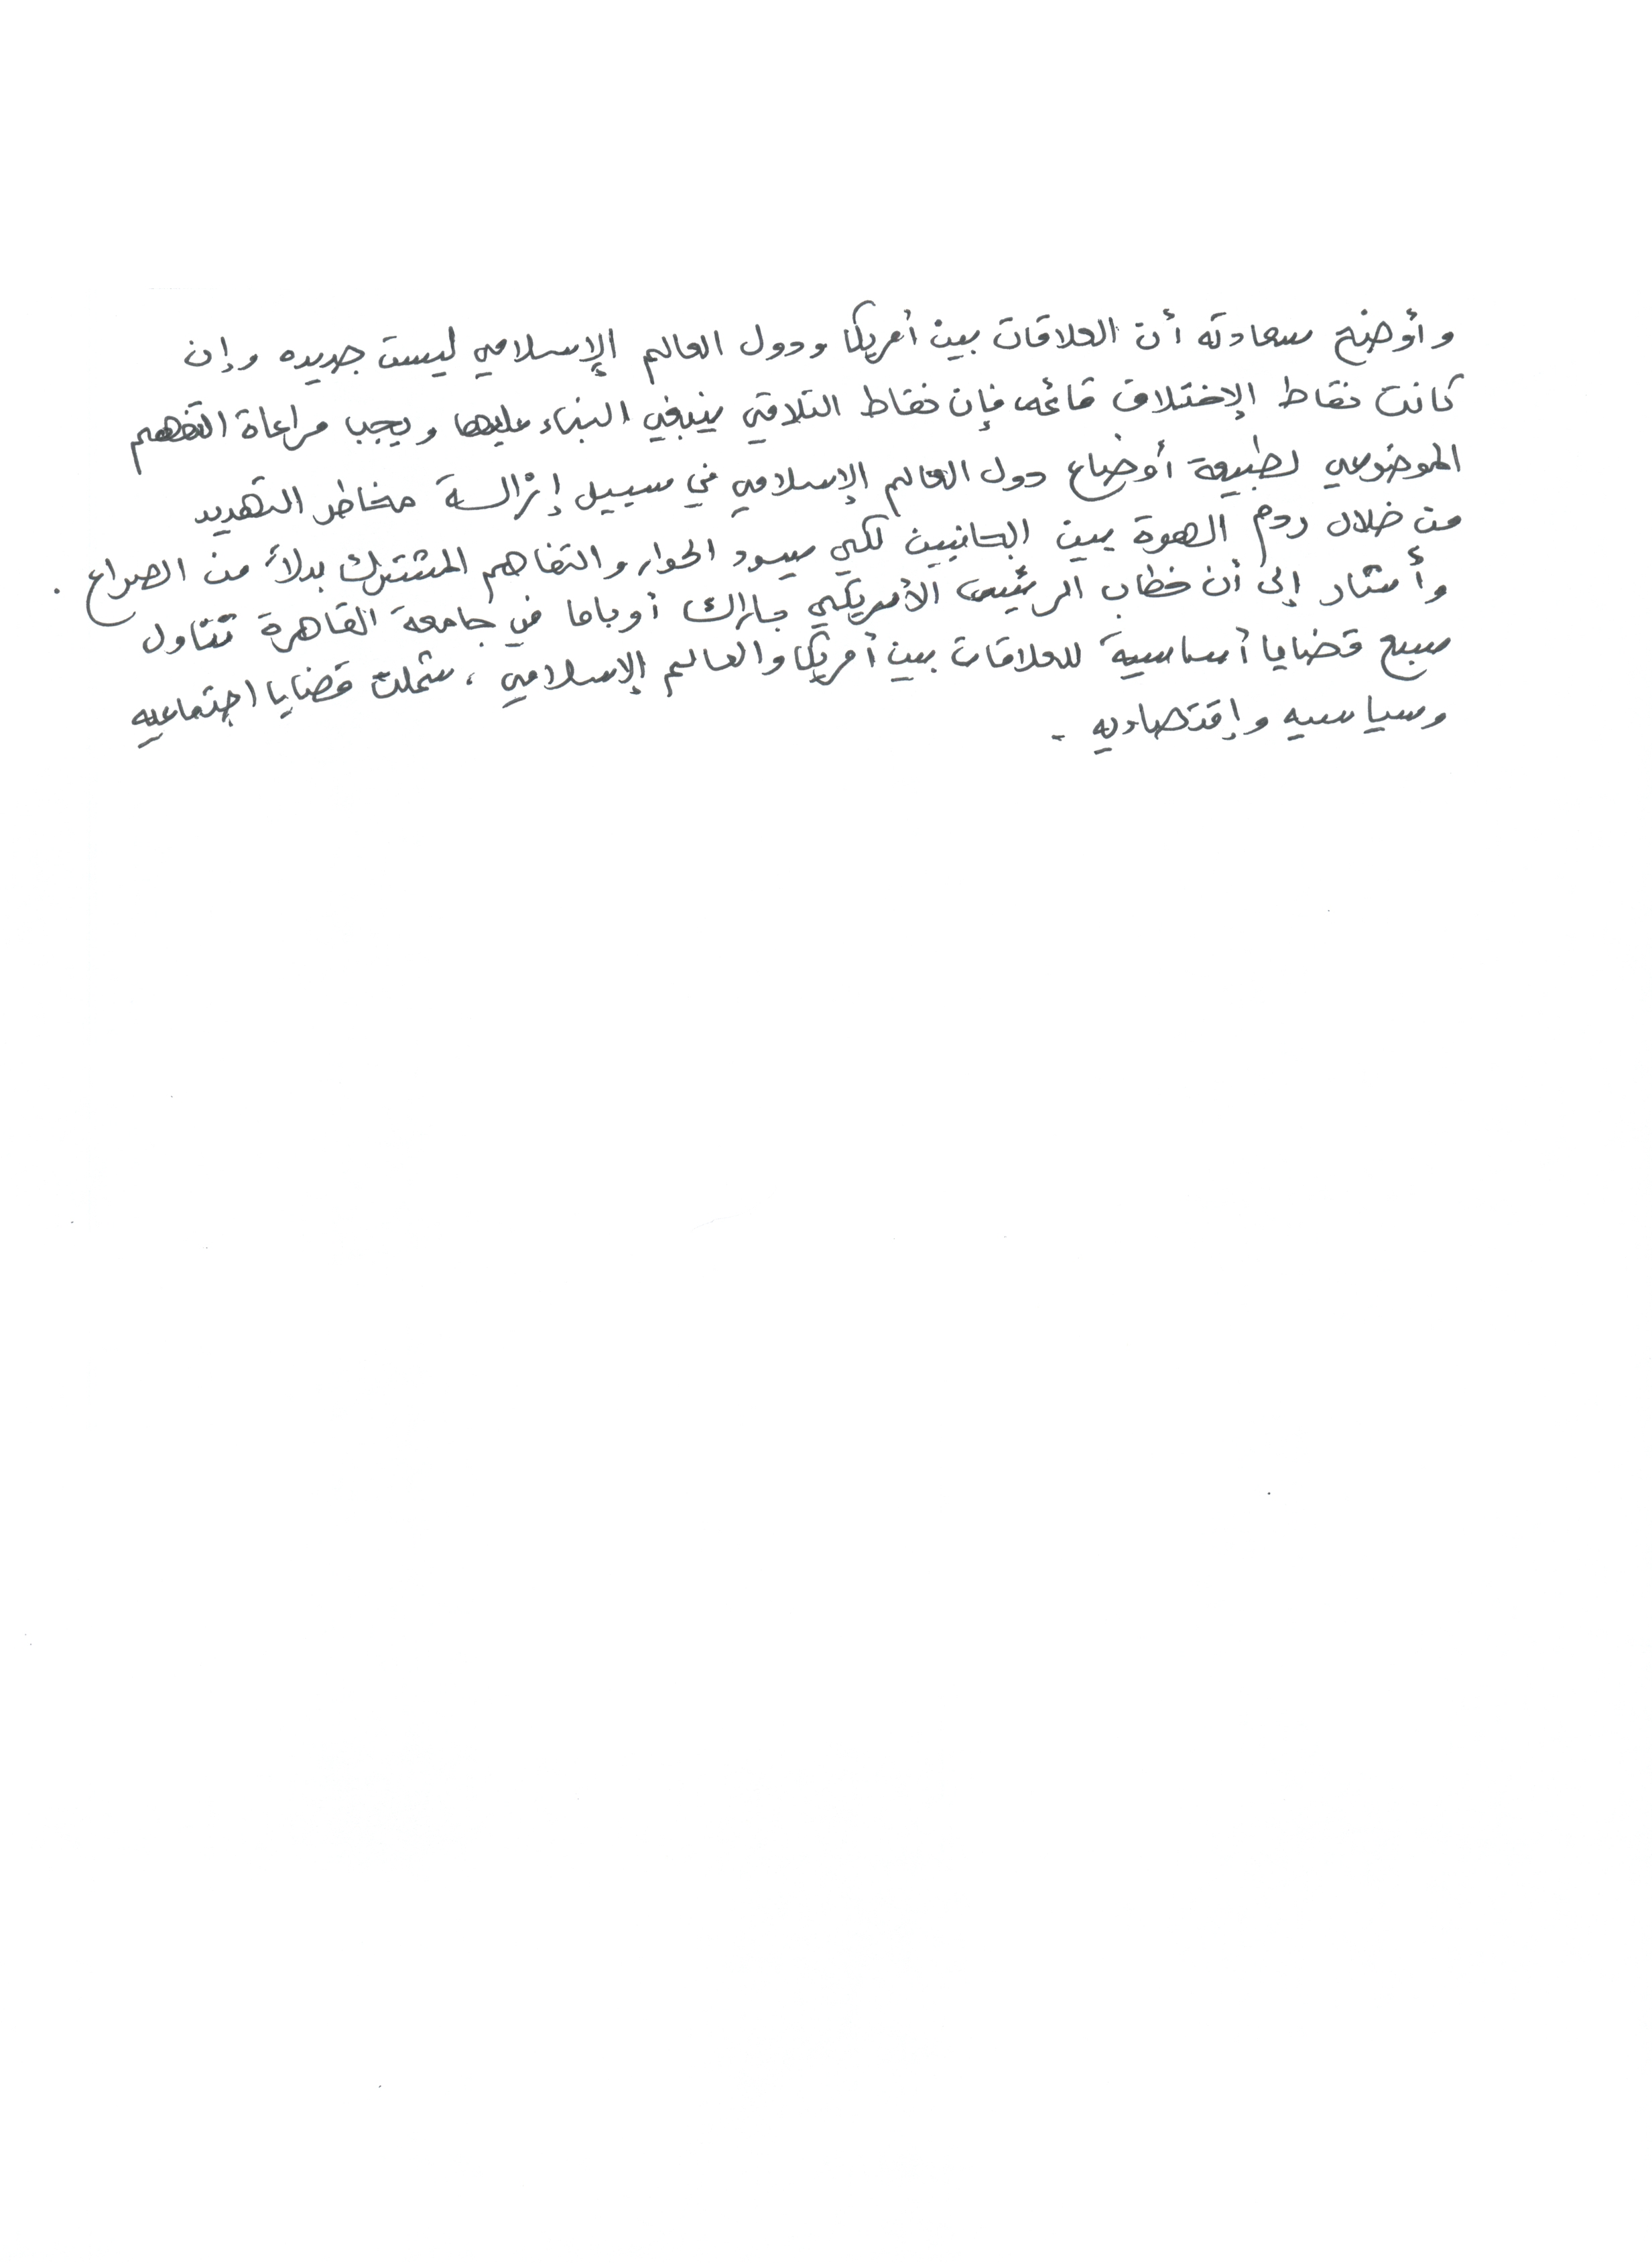 وأوضح سعادته أن العلاقات بين أمريكا ودول العالم الإسلامي ليست جديده وإن
كانت نقاط الإختلاف قائمه فإن نقاط التلاقي ينبغي البناء عليها ويجب مراعاة التفهم
الموضوعي لطبيعة أوضاع دول العالم الإسلامي في سبيل إزالة مخاطر التهديد
من خلال ردم الهوة بين الجانبين لكي يسود الحوار والتفاهم المشترك بدلاً من الصراع .
وأشار إلى أن خطاب الرئيس الأمريكي باراك أوباما في جامعة القاهرة تناول
سبع قضايا أساسية للعلاقات بين أمريكا والعالم الإسلامي ، شملت قضايا اجتماعيه
وسياسيه وإقتصاديه .